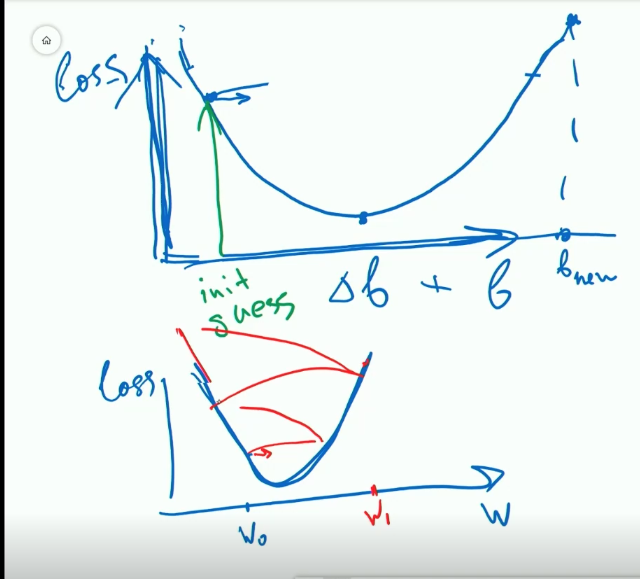 Loss
init
guess
Δb + b
b new
Loss
W₀
W₁
W